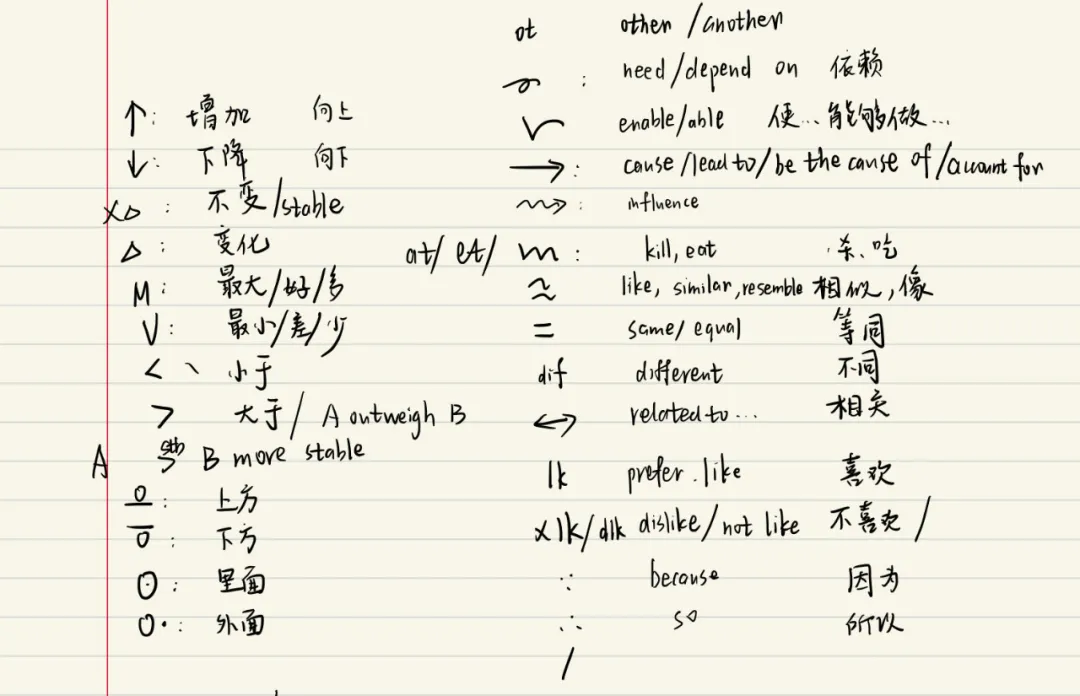 ↑: 增加 向上
↓: 下降 向下
x△: 不变/stable
△: 变化
M: 最大/好/多
V: 最小/差/少
< 、 小于
> 大于/ A outweigh B
A sth B more stable
上方
下方
里面
外面
ot other/another
: need/depend on 依赖
enable/able 使...能够做...
→: cause/lead to/be the cause of/account for
: influence
at/et/ m: kill, eat 杀、吃
≈ like, similar, resemble 相似,像
= same/equal 等同
dif different 不同
↔ related to... 相关
lk prefer.like 喜欢
xlk/dlk dislike/not like 不喜欢/
∵ because 因为
∴ so 所以
/